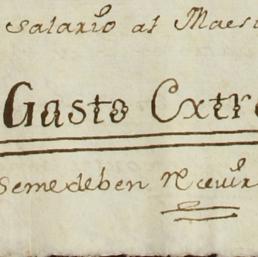 Salario al Maes
Gasto Extr
Semedeben Recevir